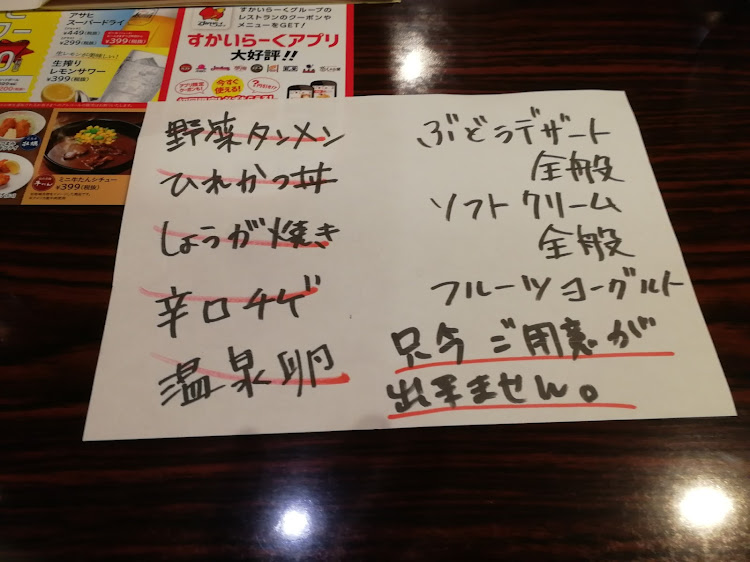 アサヒ
スーパードライ
¥449(税抜)
¥299(税抜)
¥399(税抜)
生レモンが美味しい!
生搾り
レモンサワー
¥399(税抜)
すかいらーくグループの
レストランのクーポンや
メニューをGET!
すかいらーくアプリ
大好評!!
今すぐ
使える!
ミニ牛たんシチュー
¥399(税抜)
野菜タンメン
ひれかつ丼
しょうが焼き
辛口チゲ
温泉卵
ぶどうデザート
全般
ソフトクリーム
全般
フルーツヨーグルト
只今ご用意が
出来ません。